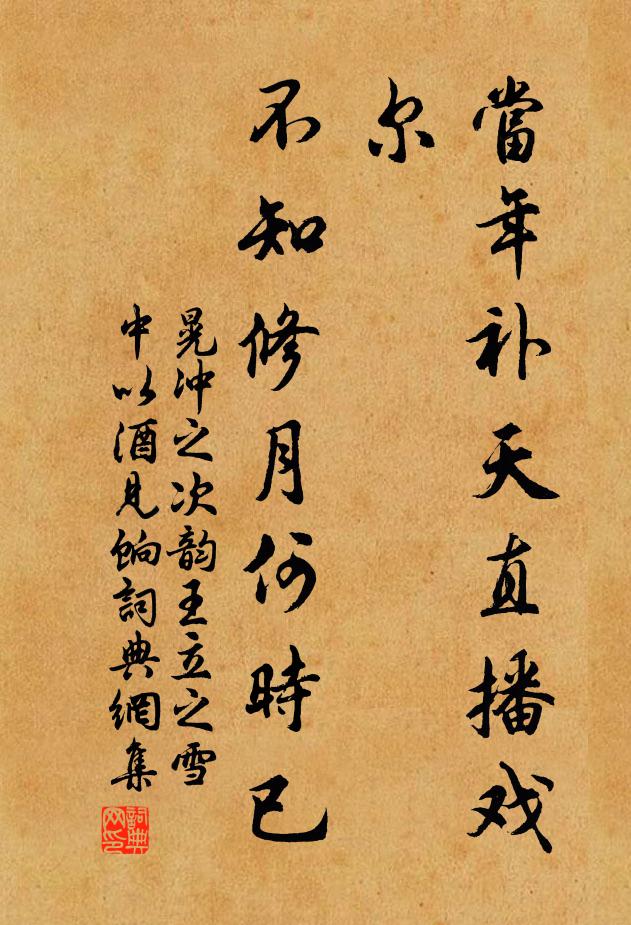 當年补天直播戏
尔
不知修月何時已
晃冲之次韵王立之雪
中以酒見餉詞典網集
詞典网印